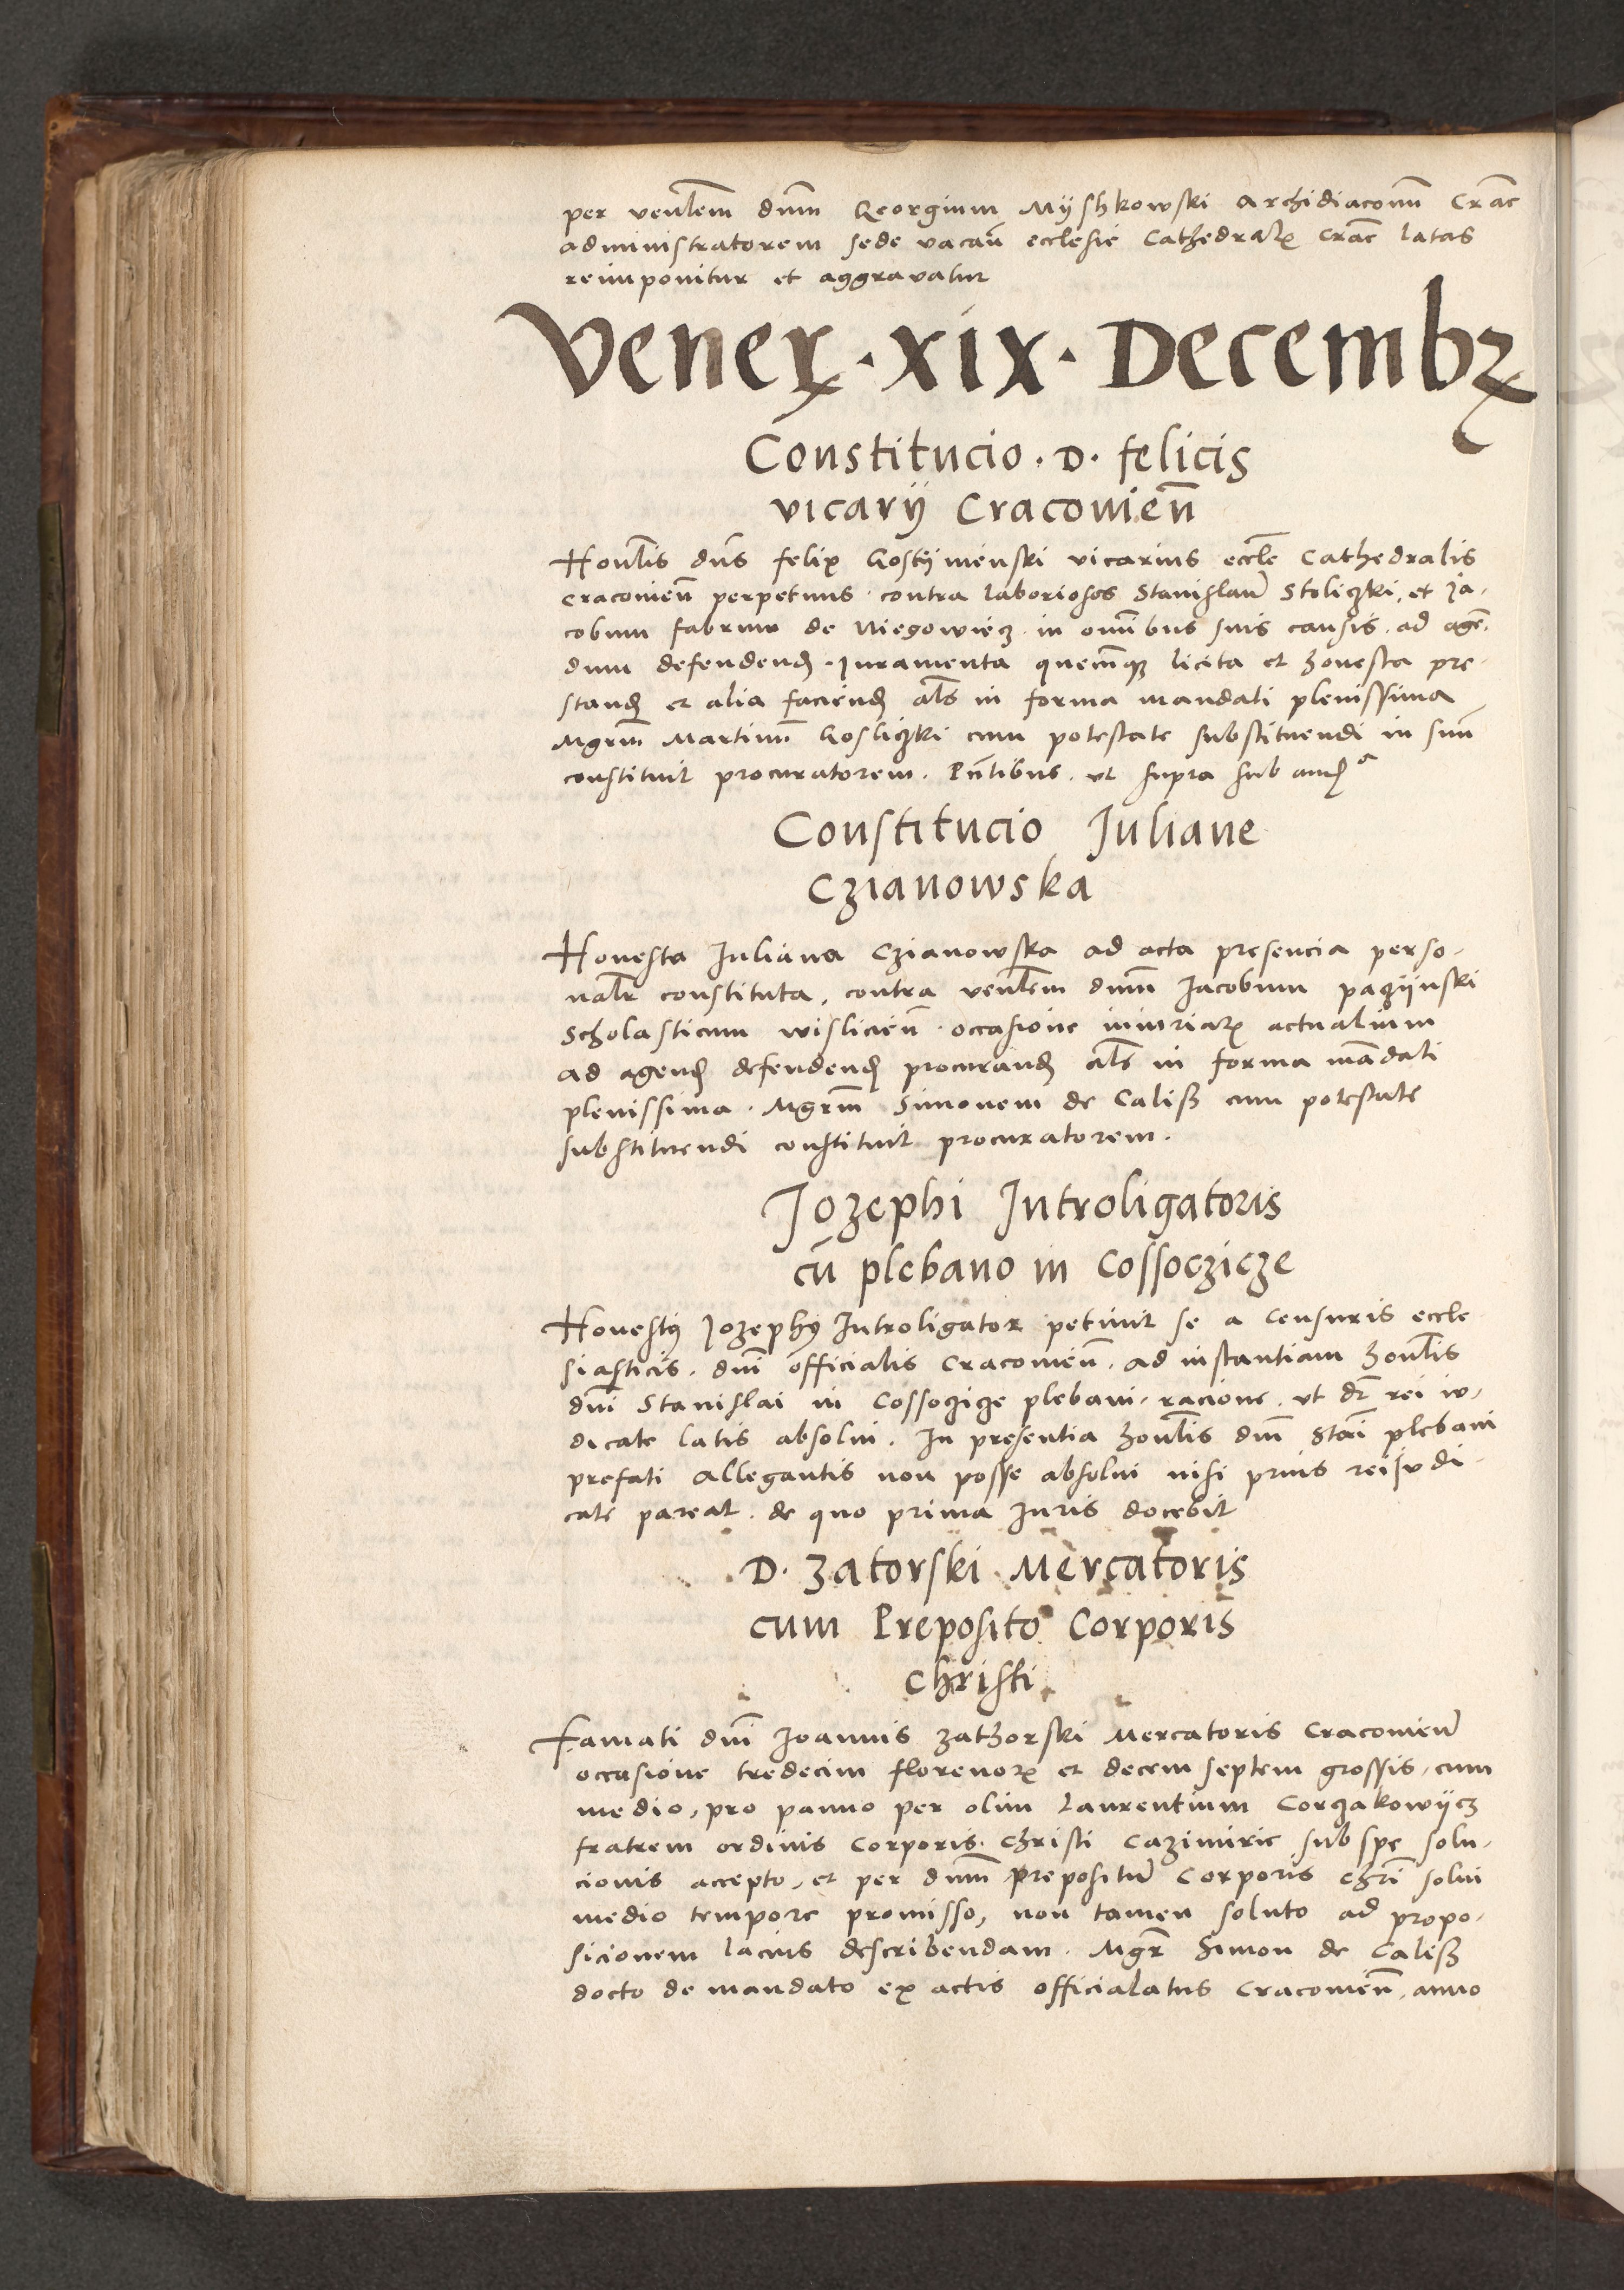 per venlem dnm Georgium Myshkowski Archidiaconu Crac
administratorem sede vacan ecclesie Cathedralis Crac latas
reimponitur et aggravatur
Vener · xix · Decembr
Constitucio · D · felicis
vicarij Cracovien
Honlis dns felix Gostijmenski vicarius eccle Cathedralis
Cracovien perpetuus · contra laboriosos Stanislau Stoliczki, et Ja-
cobum fabrum de Niegowiecz · in omnibus suis causis · ad agen-
dum defendend · Juramenta quemcq licita et honesta pre-
stand et alia faciend als in forma mandati plenissima
Mgrm Martinu Gosliczki cum potestate substituendi in suu
constituit procuratorem. Pntibus · ut supra sub
Constitucio Juliane
Czianowska
Honesta Juliana Czianowska ad acta presencia perso-
nalr constituta, contra venlem dnm Jacobum paczijnski
Scholasticum wislicien · occasione iniuriar actualium
ad agend defendend procurand als in forma madati
plenissima · Mgrm Simonem de Calisz cum potestate
substituendi constituit procuratorem.
Jozephi Introligatoris
cu plebano in Cossoczicze
Honestus Jozephus Introligator petiuit se a Censuris eccle
siasticis · dni officialis Cracovien · ad instantiam honlis
dni Stanislai in Cossoczicze plebani · racione · ut dr rei iu-
dicate latis absolui. In presentia honlis dni Stai plebani
prefati Allegantis non posse absolui nisi prius rei iudi-
cate pareat · de quo prima Juris docebit
D · Zatorski Mercatoris
cum Preposito Corporis
Christi
Famati dni Joannis Zathorski Mercatoris Cracovien
occasione tredecim florenor et decem septem grossis, cum
medio, pro panno per olim Laurentium Corczakowijcz
fratrem ordinis Corporis Christi Cazimirie sub spe solu-
cionis accepto, et per dnm prepositu Corporis Chri solui
medio tempore promisso, non tamen soluto ad propo-
sicionem lacius describendam · Mgr Simon de Calisz
docto de mandato ex actis officialatus Cracovien, anno